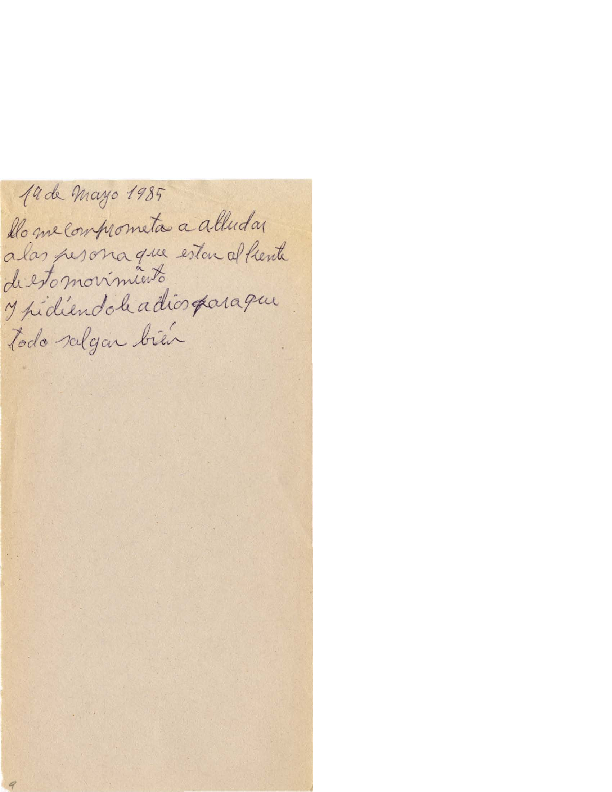 19 de Mayo 1985
llo me comprometa a alludar
a las pesona que estan al frente
de esto movimiento
Y pidiéndole a dios para que
todo salgan bién
9